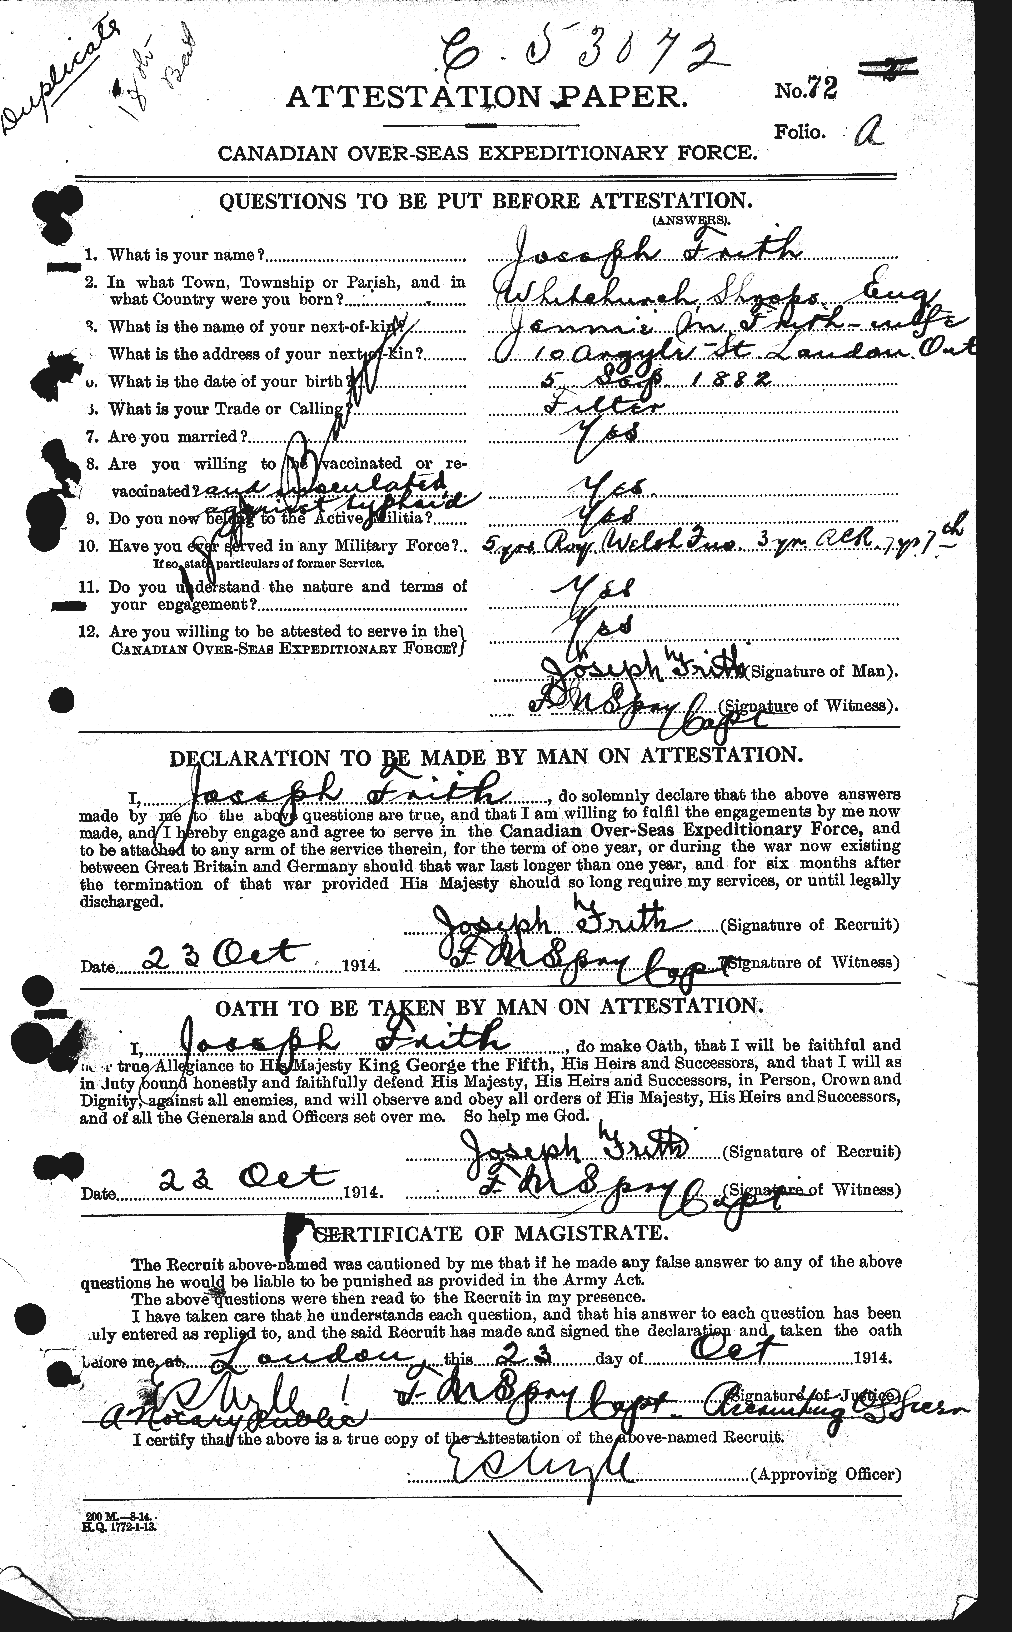 Duplicate
18th
Bat
C. 53072
ATTESTATION PAPER.
No. 72
Folio. A
CANADIAN OVER-SEAS EXPEDITIONARY FORCE.
QUESTIONS TO BE PUT BEFORE ATTESTATION.
(ANSWERS).
1. What is your name? Joseph Frith
2. In what Town, Township or Parish, and in
what Country were you born? Whitchurch Shrops. Eng
3. What is the name of your next-of-kin? Jennie M. Frith - wife
What is the address of your next-of-kin? 10 Argyle St London Ont
What is the date of your birth? 5 Sep. 1882
What is your Trade or Calling? Fitter
7. Are you married? Yes
8. Are you willing to be vaccinated or re-
vaccinated? and inoculated Yes.
against typhoid
9. Do you now belong to the Active Militia? Yes
10. Have you ever served in any Military Force? 5 yrs Roy. Welsh Fus. 3 yr. ACR. 7 yr 7th
If so, state particulars of former Service.
11. Do you understand the nature and terms of
your engagement? Yes
12. Are you willing to be attested to serve in the
CANADIAN OVER-SEAS EXPEDITIONARY FORCE? Yes
Joseph Frith (Signature of Man).
Capt (Signature of Witness).
DECLARATION TO BE MADE BY MAN ON ATTESTATION.
I, Joseph Frith, do solemnly declare that the above answers
made by me to the above questions are true, and that I am willing to fulfil the engagements by me now
made, and I hereby engage and agree to serve in the Canadian Over-Seas Expeditionary Force, and
to be attached to any arm of the service therein, for the term of one year, or during the war now existing
between Great Britain and Germany should that war last longer than one year, and for six months after
the termination of that war provided His Majesty should so long require my services, or until legally
discharged.
Joseph Frith (Signature of Recruit)
Date 23 Oct 1914. Capt (Signature of Witness)
OATH TO BE TAKEN BY MAN ON ATTESTATION.
I, Joseph Frith, do make Oath, that I will be faithful and
true Allegiance to His Majesty King George the Fifth, His Heirs and Successors, and that I will as
in duty bound honestly and faithfully defend His Majesty, His Heirs and Successors, in Person, Crown and
Dignity, against all enemies, and will observe and obey all orders of His Majesty, His Heirs and Successors,
and of all the Generals and Officers set over me. So help me God.
Joseph Frith (Signature of Recruit)
Date 23 Oct 1914. Capt (Signature of Witness)
CERTIFICATE OF MAGISTRATE.
The Recruit above-named was cautioned by me that if he made any false answer to any of the above
questions he would be liable to be punished as provided in the Army Act.
The above questions were then read to the Recruit in my presence.
I have taken care that he understands each question, and that his answer to each question has been
duly entered as replied to, and the said Recruit has made and signed the declaration and taken the oath
before me, at London, this 23 day of Oct 1914.
Capt. Recruiting Officer (Signature of Justice)
A Notary Public
I certify that the above is a true copy of the Attestation of the above-named Recruit.
(Approving Officer)
200 M.—8-14.
H.Q. 1772-1-13.